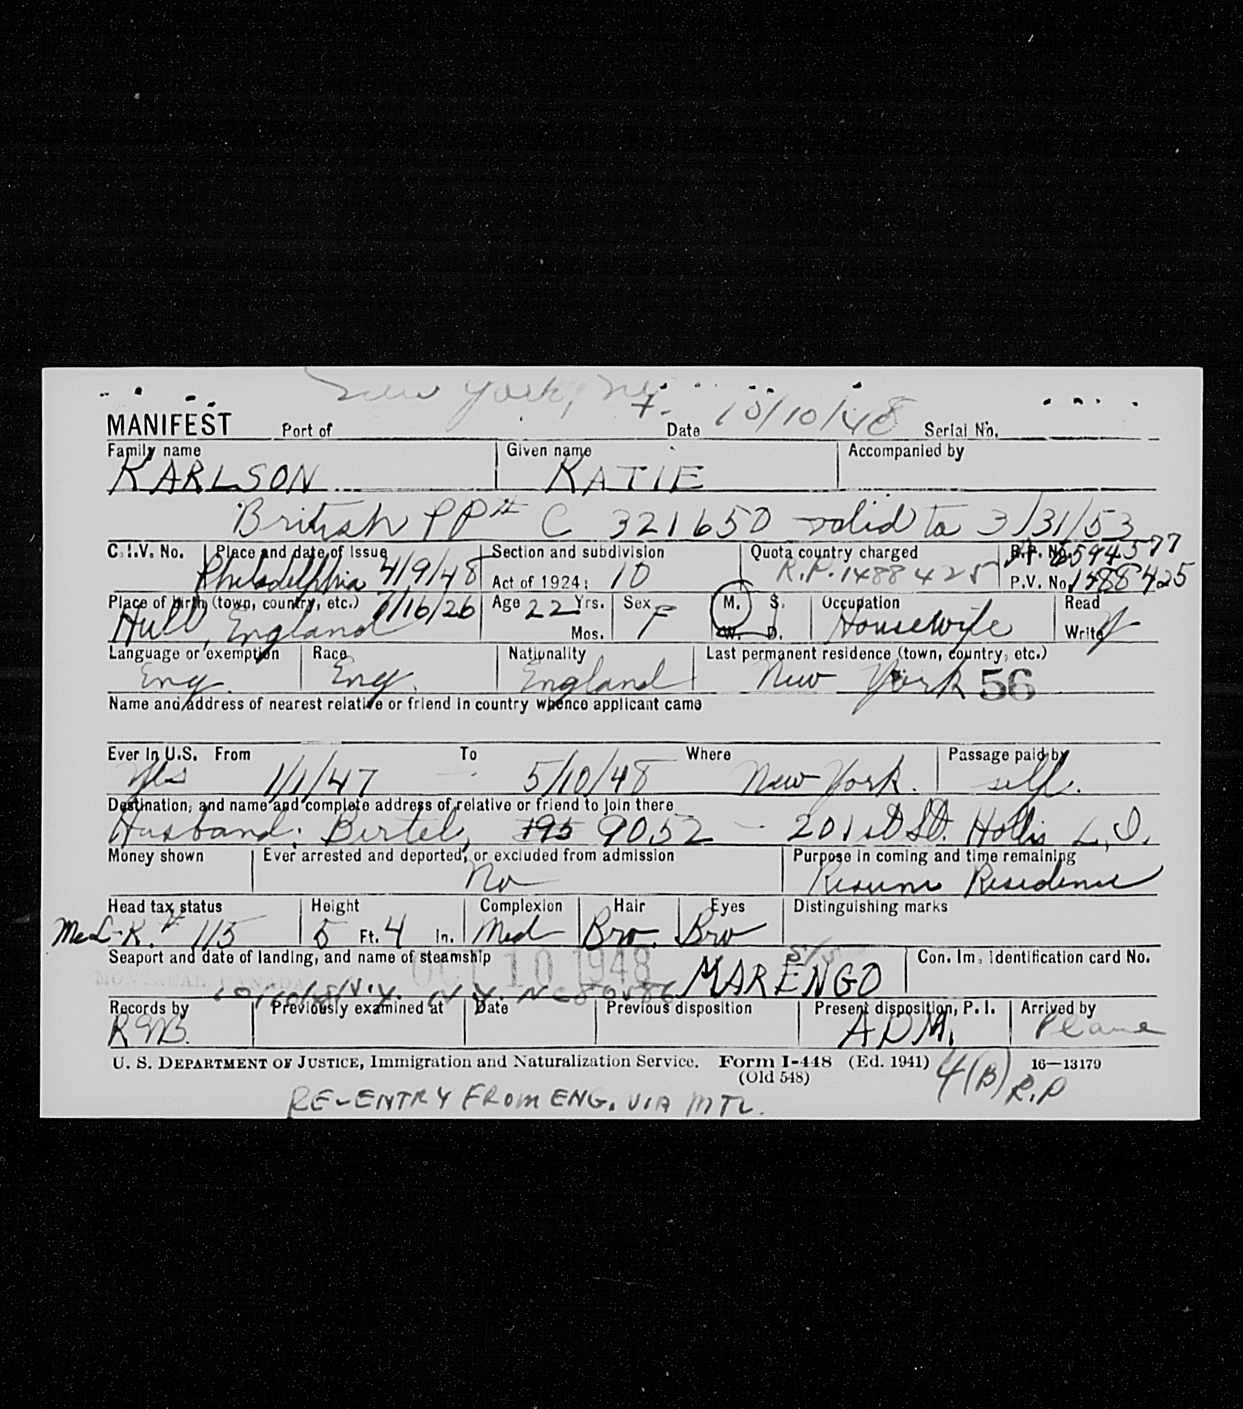 New York, NY 10/10/48
MANIFEST Port of Date Serial No.
Family name Given name Accompanied by
KARLSON KATIE
British PP# C 321650 valid to 3/31/53
C.I.V. No. Place and date of issue Section and subdivision Quota country charged R.P. No. 6594577
Philadelphia 4/9/48 Act of 1924: 10 R.P. 1488425 P.V. No. 1488425
Place of birth (town, country, etc.) 7/16/26 Age 22 Yrs. Sex M. S. Occupation Read
Hull, England Mos. F W. D. Housewife Write Y
Language or exemption Race Nationality Last permanent residence (town, country, etc.)
Eng. Eng. England New York 56
Name and address of nearest relative or friend in country whence applicant came
Ever in U.S. From To Where Passage paid by
Yes 1/1/47 - 5/10/48 New York. self.
Destination, and name and complete address of relative or friend to join there
Husband: Bertel, 195 9052 - 201st St. Hollis L.I.
Money shown Ever arrested and deported, or excluded from admission Purpose in coming and time remaining
No Resume Residence
Head tax status Height Complexion Hair Eyes Distinguishing marks
115 5 Ft. 4 In. Med Bro. Bro
Seaport and date of landing, and name of steamship Con. Im. Identification card No.
OCT 10 1948 MARENGO
10/10/48
Records by Previously examined at Date Previous disposition Present disposition, P. I. Arrived by
RWB. ADM. Plane
U. S. DEPARTMENT OF JUSTICE, Immigration and Naturalization Service. Form I-448 (Ed. 1941) 4(B) 16—13179
(Old 548) R.P
RE-ENTRY FROM ENG. VIA MTL.